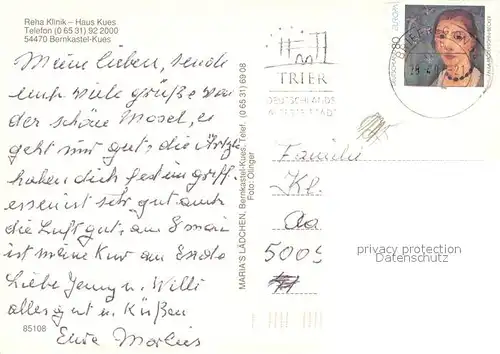 Reha Klinik – Haus Kues
Telefon (0 65 31) 92 2000
54470 Bernkastel-Kues
Meine lieben, sende
euch viele grüße von
der schöne Mosel, es
geht mir gut, die Ärzte
haben dich fest im griff.
essen ist sehr gut auch
die Luft gut, am 8 mai
ist meine Kur am Ende
Liebe Jenny u. Willi
alles gut u. Küßen
Eure
85108
MARIA'S LÄDCHEN, Bernkastel-Kues, Telef. (0 65 31) 69 08
Foto Olinger
TRIER
DEUTSCHLANDS
ÄLTESTE STADT
DEUTSCHE
80
EUROPA
PAULA MODERSOHN-BECKER
Familie
Kl.
Aa
5009
privacy protection
Datenschutz